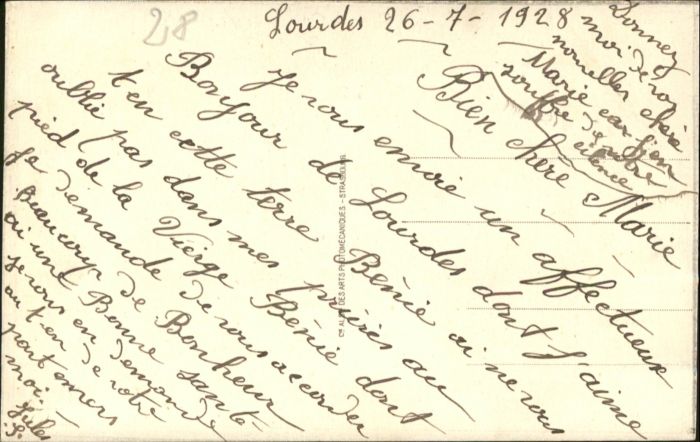 28
Lourdes 26-7-1928
Bien chere Marie
Je vous envoie un affectueux
Bonjour de Lourdes dont J'aime
t en cette terre Bénie ai ne vous
oublie pas dans mes prières au
pied de la Vierge Bénie dont
Je demande de vous accorder
Beaucoup de Bonheur
ai une Bonne santé
Je vous en demande
au t en de votre
part envers
moi Jules
S.
Donnez
moi de vos
nouvelles chère
Marie car J'en
souffre de votre
silence
Cie ALSne DES ARTS PHOTOMÉCANIQUES - STRASBOURG